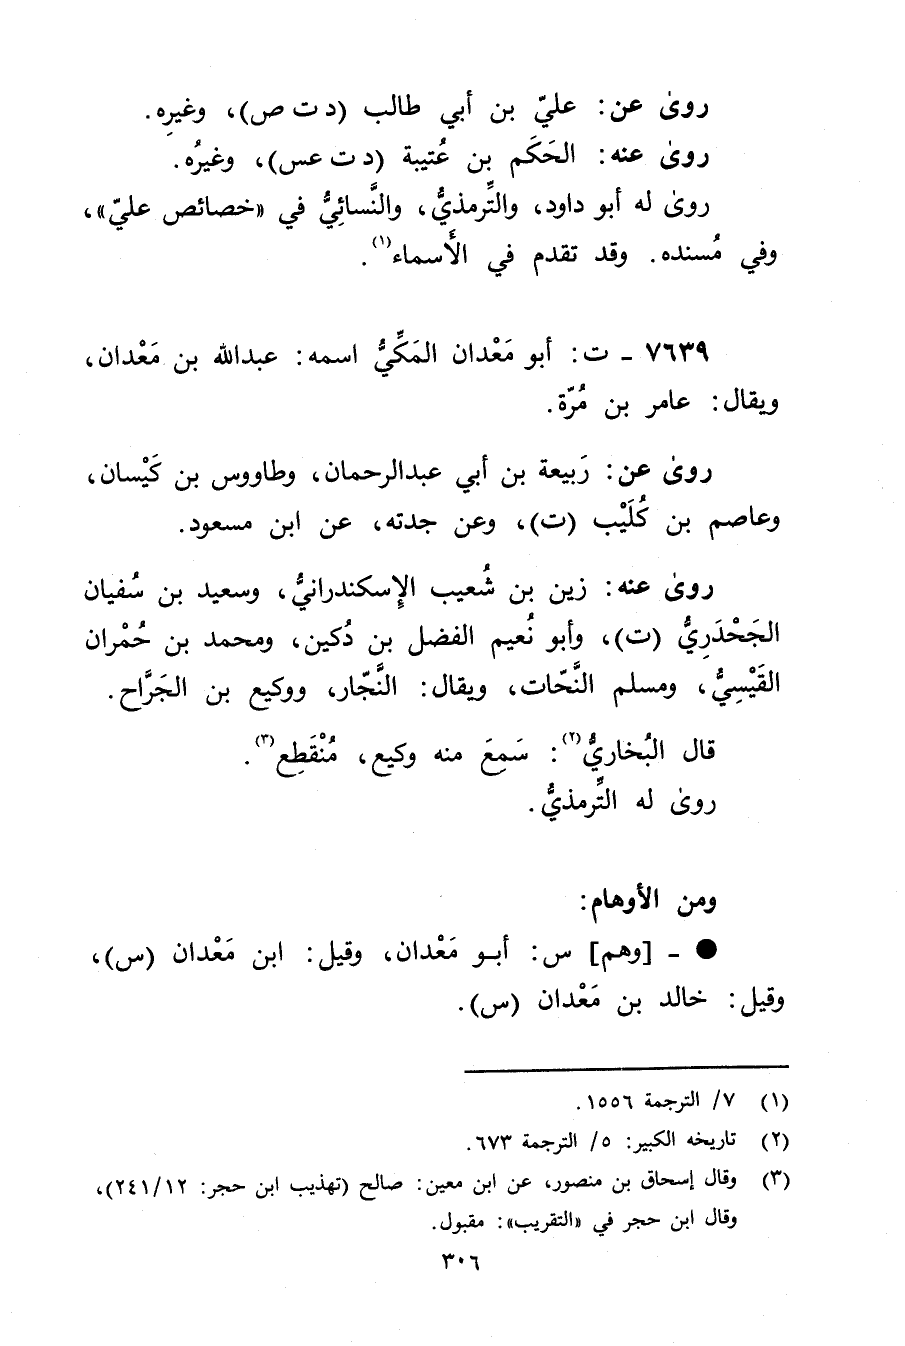 روىٰ عن: عليّ بن أبي طالب (د ت ص)، وغيرِه.
روىٰ عنه: الحَكَم بن عُتيبة (د ت عس)، وغيرُه.
روىٰ له أبو داود، والتِّرمذيُّ، والنَّسائِيُّ في «خصائص عليّ»،
وفي مُسنده. وقد تقدم في الأَسماء(١).
٧٦٣٩ ـ ت: أبو مَعْدان المَكِّيُّ اسمه: عبدالله بن مَعْدان،
ويقال: عامر بن مُرّة.
روىٰ عن: رَبيعة بن أبي عبدالرحمان، وطاووس بن كَيْسان،
وعاصم بن كُلَيْب (ت)، وعن جدته، عن ابن مسعود.
روىٰ عنه: زين بن شُعيب الإِسكندرانيُّ، وسعيد بن سُفيان
الجَحْدَرِيُّ (ت)، وأبو نُعيم الفضل بن دُكين، ومحمد بن حُمْران
القَيْسِيُّ، ومسلم النَّحّات، ويقال: النَّجّار، ووكيع بن الجَرَّاح.
قال البُخاريُّ(٢): سَمِعَ منه وكيع، مُنْقَطِع(٣).
روىٰ له التِّرمذيُّ.
ومن الأوهام:
● ـ [وهم] س: أبو مَعْدان، وقيل: ابن مَعْدان (س)،
وقيل: خالد بن مَعْدان (س).
(١) ٧/ الترجمة ١٥٥٦.
(٢) تاريخه الكبير: ٥/ الترجمة ٦٧٣.
(٣) وقال إسحاق بن منصور، عن ابن معين: صالح (تهذيب ابن حجر: ٢٤١/١٢)،
وقال ابن حجر في «التقريب»: مقبول.
٣٠٦